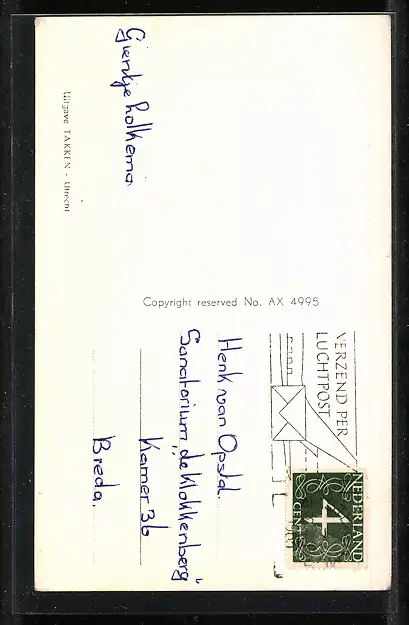 Gientje Rolkema
Uitgave TAKKEN - Utrecht
Copyright reserved No. AX 4995
VERZEND PER
LUCHTPOST
NEDERLAND
4
CENT
Henk van Opstal.
Sanatorium „de Klokkenberg"
Kamer 36
Breda.